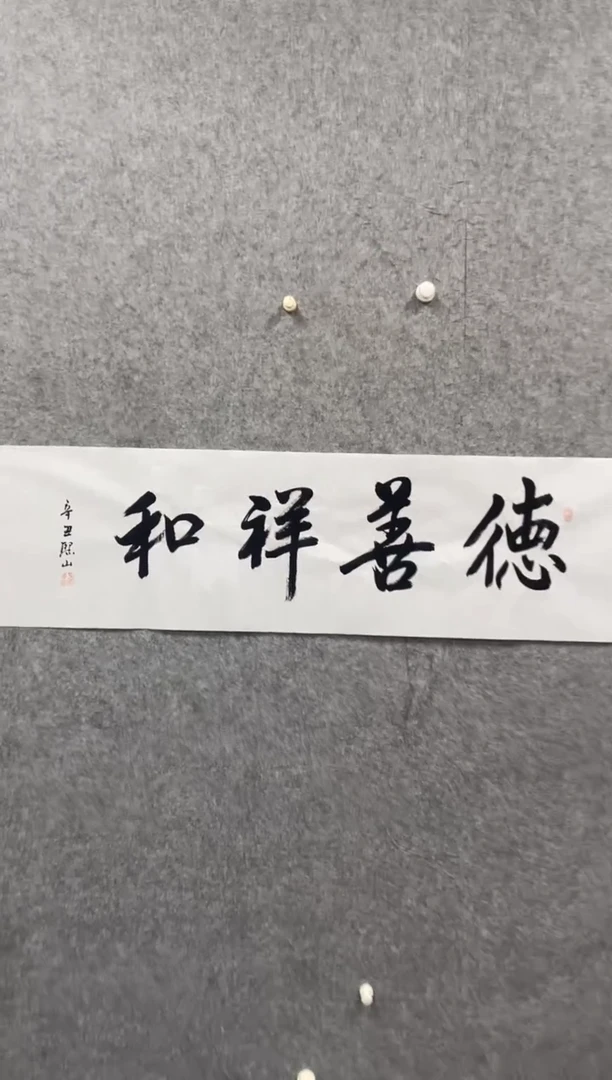 德善祥和
辛丑
山